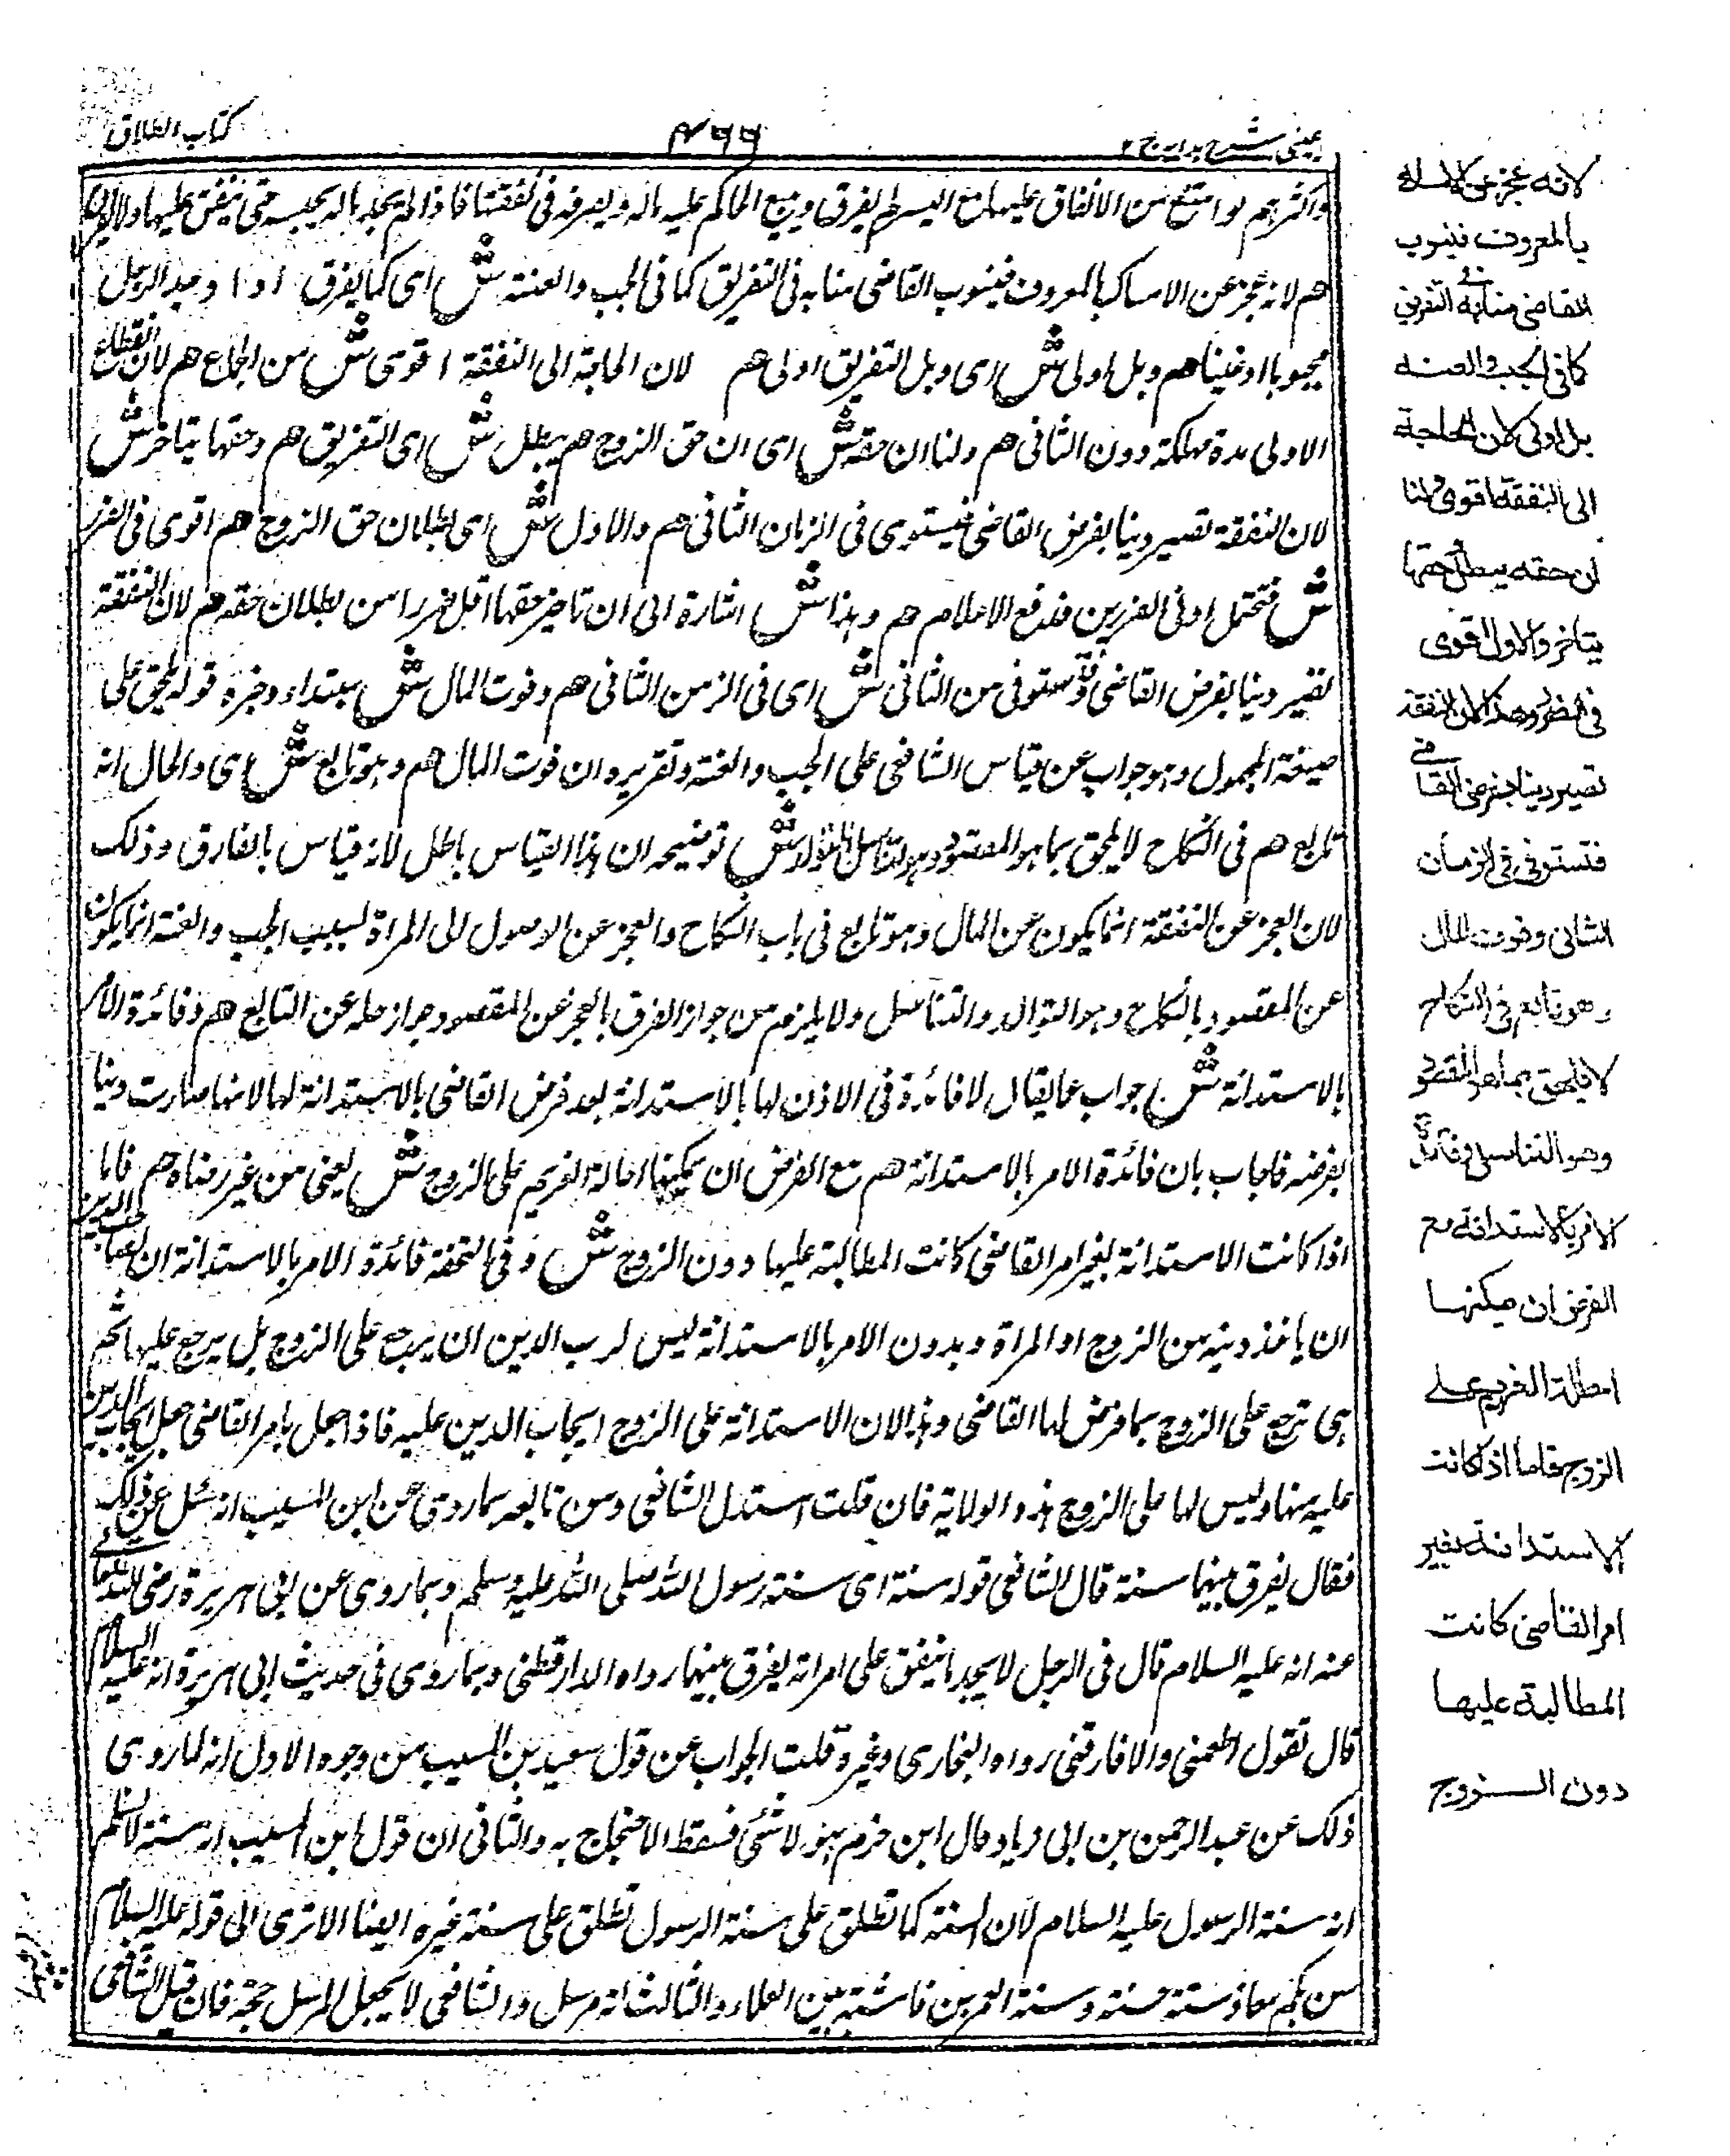 عینی شرح ہدایہ ج ۲
۴۶۶
کتاب الطلاق
واکثرہم لو امتنع من الانفاق علیہا مع الیسر لم یفرق ویبیع الحاکم علیہ مالہ ویصرفہ فی نفقتہا فاذا لم یجد مالہ یحبسہ حتی ینفق علیہا ولا یفرق
ھم لانہ عجز عن الامساک بالمعروف فینوب القاضی منابہ فی التفریق کما فی الجب والعنتہ ش ای کما یفرق اذا وجد الرجل
مجبوبا او عنینا ھم وبل اولی ش ای وبل التفریق اولی ھم لان الحاجة الی النفقة اقوی ش من الجماع ھم لان انقطاع
الاولی مدة مہلکة دون الثانی ھم ولنا ان حقہ ش ای ان حق الزوج ھم یبطل ش ای التفریق ھم وحقہا یتاخر ش
لان النفقة تصیر دینا بفرض القاضی فیستوی فی الزمان الثانی ھم والاول ش ای بطلان حق الزوج ھم اقوی فی الضرر
ش فتحمل ادنی الضررین فدفع الاعلام ھم وہذا ش اشارة الی ان تاخیر حقہا اقل ضررا من بطلان حقہ ھم لان النفقة
تصیر دینا بفرض القاضی فتستوفی من الثانی ش ای فی الزمن الثانی ھم وفوت المال ش مبتداء وخبرہ قولہ یلحق علی
صیغة المجہول وہو جواب عن قیاس الشافعی علی الجب والعنة وتقریرہ ان فوت المال ھم وہو تابع ش ای والحال انہ
تابع ھم فی النکاح لا یلحق بما ہو المقصود وہو التناسل ش توضیحہ ان ہذا القیاس باطل لانہ قیاس بالفارق وذلک
لان العجز عن النفقة انما یکون عن المال وہو تابع فی باب النکاح والعجز عن الوصول الی المراة بسبب الجب والعنة انما یکون
عن المقصود بالنکاح وہو التوالد والتناسل ولا یلزم من جواز الفرق بالعجز عن المقصود جوازہ عن التابع ھم وفائدة الامر
بالاستدانة ش جواب عما یقال لا فائدة فی الاذن لہا بالاستدانة بعد فرض القاضی بالاستدانة لہا لانہا صارت دینا
بفرضہ فاجاب بان فائدة الامر بالاستدانة ھم مع الفرض ان یمکنہا احالة الغریم علی الزوج ش یعنی من غیر رضاہ ھم فاما
اذا کانت الاستدانة بغیر امر القاضی کانت المطالبة علیہا دون الزوج ش وفی التحفة فائدة الامر بالاستدانة ان لصاحب الدین
ان یاخذ دینہ من الزوج او المراة وبدون الامر بالاستدانة لیس لرب الدین ان یرجع علی الزوج بل یرجع علیہا ثم
ہی ترجع علی الزوج بما فرض لہا القاضی وہذا لان الاستدانة علی الزوج ایجاب الدین علیہ فاذا جعل بامر القاضی جعل ایجاب الدین
علیہ منہا ولیس لہا علی الزوج ہذہ الولایة فان قلت استدل الشافعی ومن تابعہ بما روی عن ابن المسیب انہ سئل عن ذلک
فقال یفرق بینہما سنة قال الشافعی قولہ سنة ای سنة رسول اللہ صلی اللہ علیہ وسلم وبما روی عن ابی ہریرة رضی اللہ تعالی
عنہ انہ علیہ السلام قال فی الرجل لا یجد ما ینفق علی امراتہ یفرق بینہما رواہ الدارقطنی وبما روی فی حدیث ابی ہریرة انہ علیہ السلام
قال تقول اطعمنی والا فارقنی رواہ البخاری وغیرہ قلت الجواب عن قول سعید بن المسیب من وجوہ الاول انہ لما روی
ذلک عن عبد الرحمن بن ابی وقال ابن حزم ہو لا شئ فسقط الاحتجاج بہ والثانی ان قول ابن المسیب انہ سنة لا نسلم
انہ سنة الرسول علیہ السلام لان السنة کما تطلق علی سنة الرسول تطلق علی سنة غیرہ ایضا الا تری الی قولہ علیہ السلام
سن لکم معاذ سنة حسنة وسنة العمرین فاشیة بین العلماء والثالث انہ مرسل والشافعی لا یجعل المرسل حجة فان قیل الشافعی
لانه عجز عن الامساك
بالمعروف فينوب
القاضى منابه فى التفريق
كما فى الجب والعنه
بل اولى لان الحاجة
الى النفقة اقوى ولنا
ان حقه يبطل وحقها
يتاخر والاول اقوى
فى الضرر وهذا لان النفقة
تصير دينا بفرض القاضى
فتستوفى فى الزمان
الثانى وفوت المال
وهو تابع فى النكاح
لا يلحق بما هو المقصود
وهو التناسل وفائدة
الامر بالاستدانة مع
الفرض ان يمكنها
احالة الغريم على
الزوج فاما اذا كانت
الاستدانة بغير
امر القاضى كانت
المطالبة عليها
دون الزوج